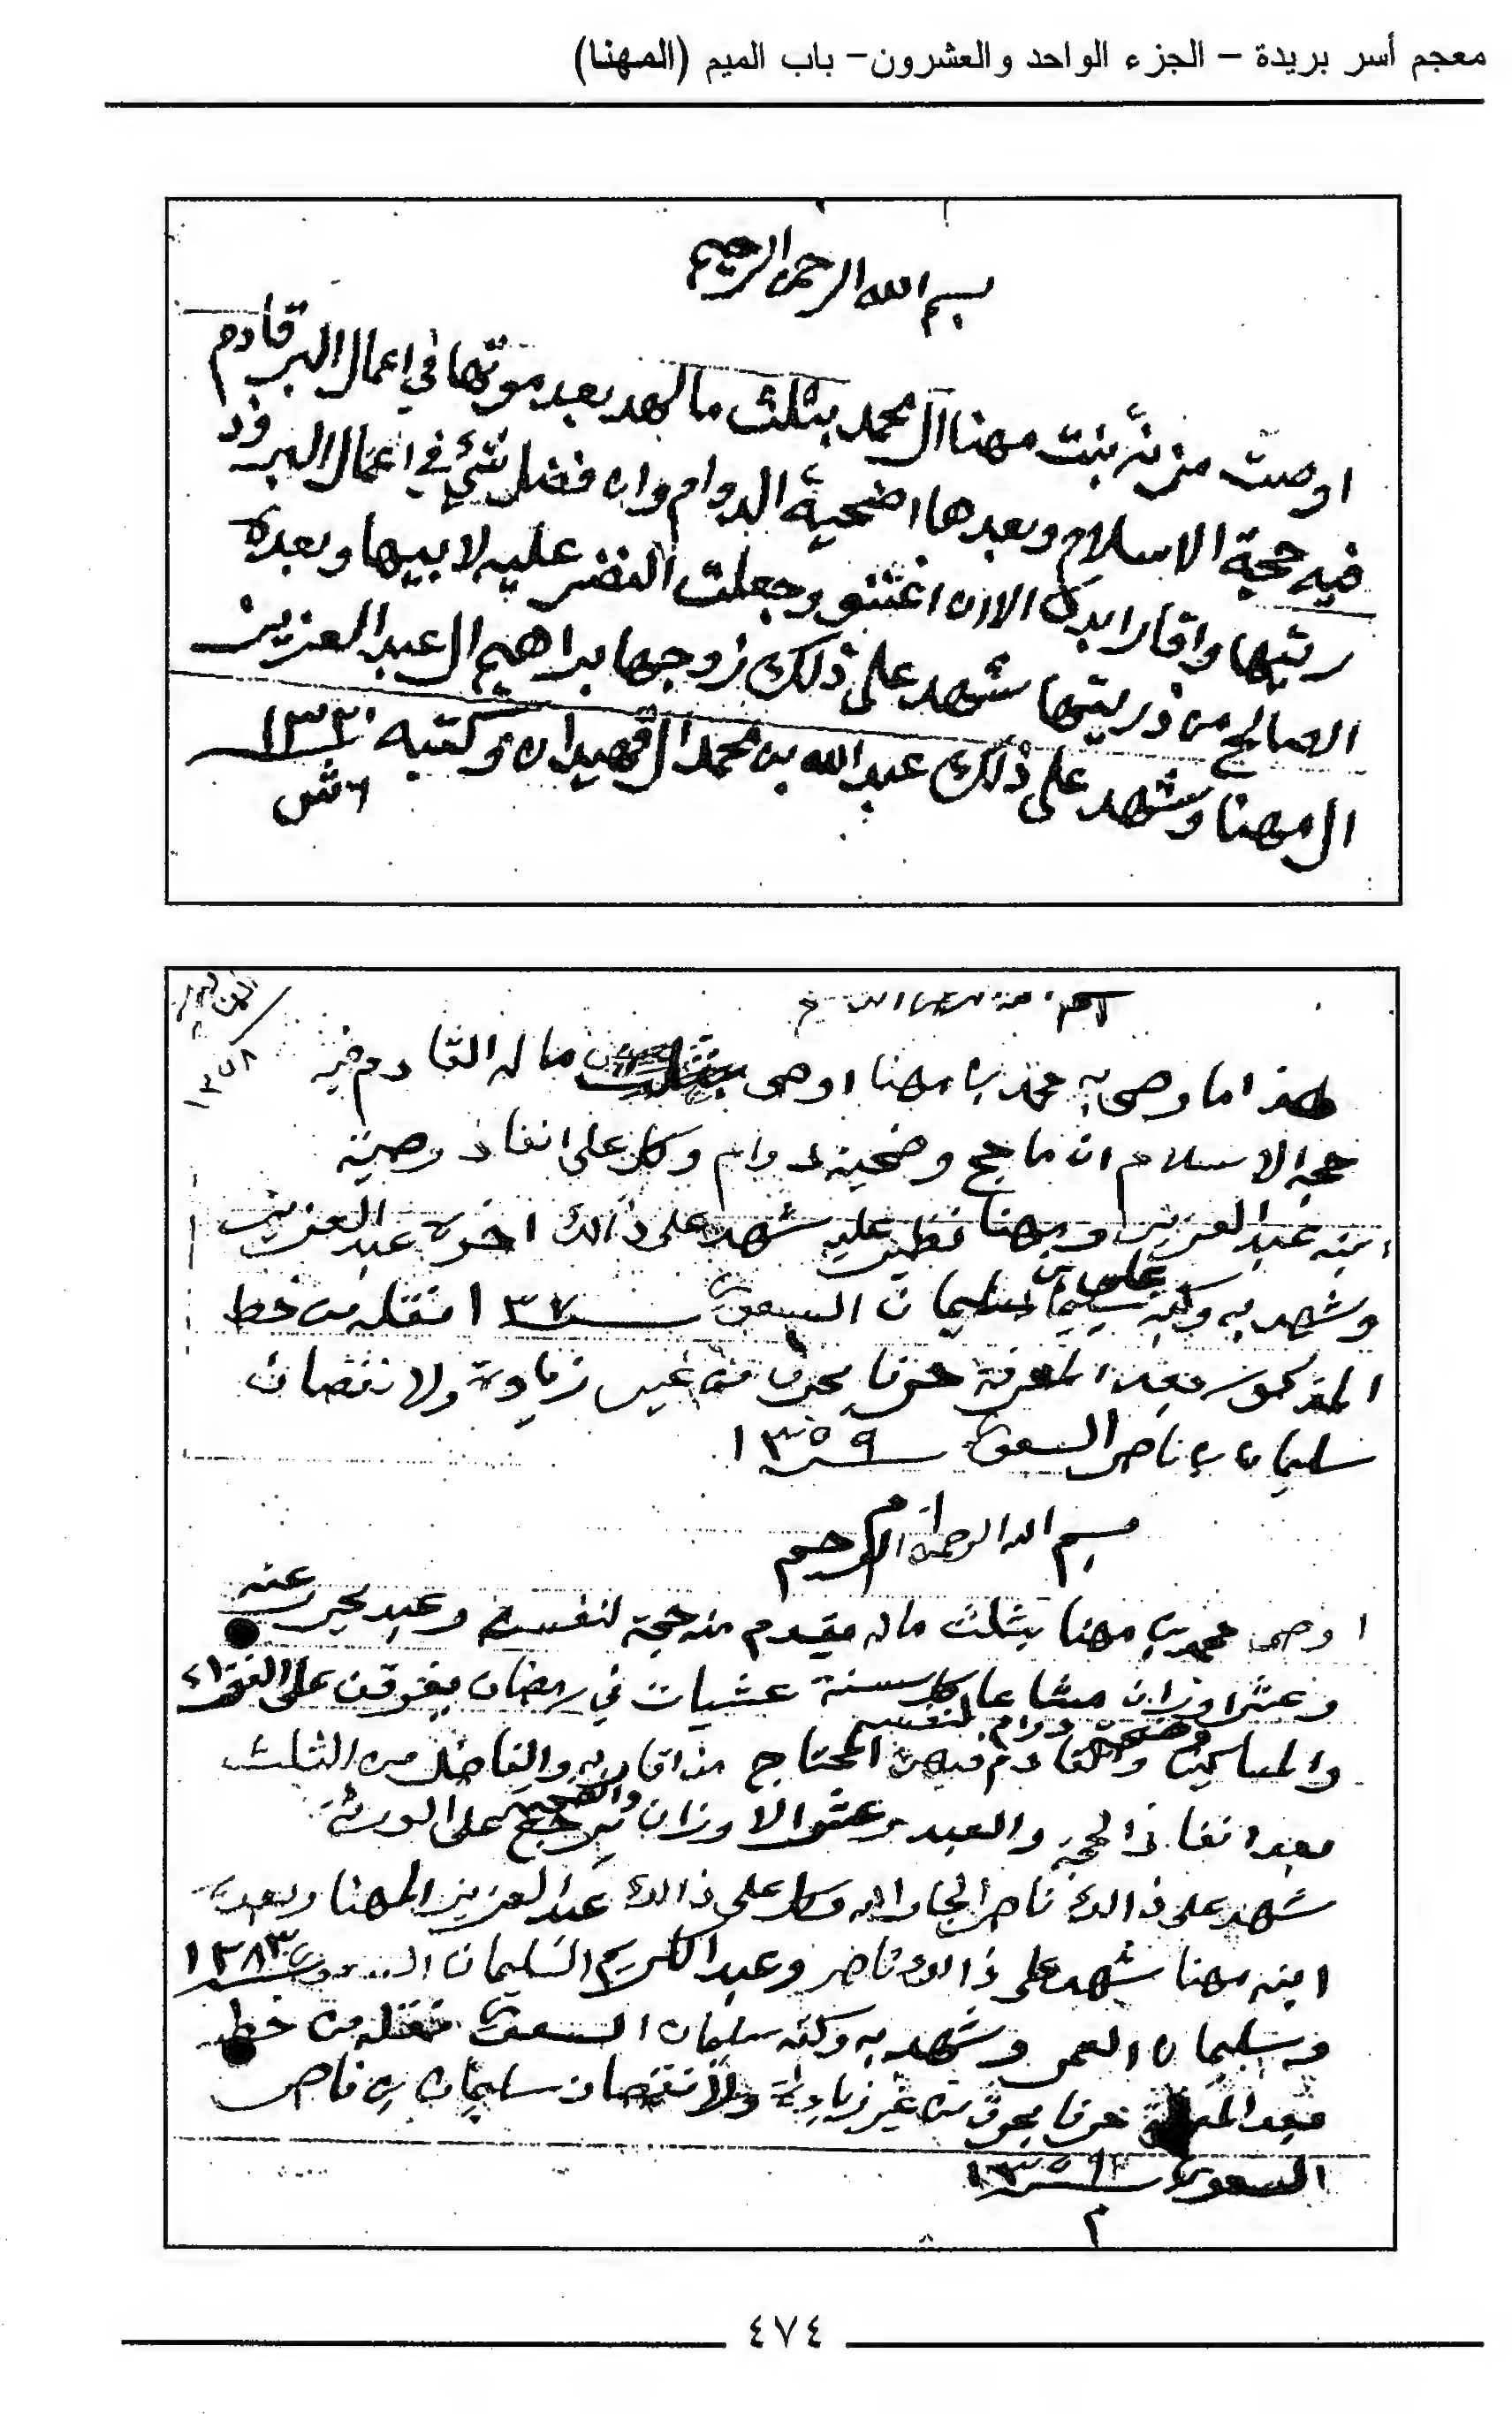 معجم أسر بريدة – الجزء الواحد والعشرون – باب الميم (المهنا)
بسم الله الرحمن الرحيم
اوصت مزنة بنت مهنا آل محمد بثلث مالها بعد موتها في اعمال البر قادم
فيه حجة الاسلام وبعدها اضحية الدوام وان فضل شيء في اعمال البر
الا ان اغتنو وجعلت النضر عليه لابيها وبعده
الصالح من ذريتها شهد على ذلك زوجها براهيم ال عبد العزيز
ال مهنا وشهد على ذلك عبد الله بن محمد ال وكتبه ١٣٢٠
١٣٥٨
هذا ما وصى به محمد بن مهنا اوصى بثلث ماله القادم فيه
حجة الاسلام ان ما حج وضحية دوام وكل على انفاذ وصيته
ابنه عبد العزيز ومهنا نظير عليه شهد على ذالك اخوه عبد العزيز
وشهد به وكتبه سليمان السعوي نقله من خط
المذكور بعد المعرفة حرفا بحرف من غير زيادة ولا نقصان
سليمان بن ناصر السعوي ١٣٥٩
بسم الله الرحمن الرحيم
اوصى محمد بن مهنا بثلث ماله يقدم منه حجة لنفسه وعبد يحرر عنه
وعشر اوزان مشاعا كل سنة عشيات في رمضان يفرقن على الفقراء
وضحية دوام لنفسه
والمساكين والقادم فيهن المحتاج من اقاربه والفاضل من الثلث
بعد انفاذ الحجة والعبد وعشر الاوزان والضحية يرجع على الورثة
شهد على ذالك ناصر الجار الله وكل على ذالك عبد العزيز المهنا وبعده
ابنه مهنا شهد على ذالك ناصر وعبد الكريم السليمان
وسليمان العمر وشهد به وكتبه سليمان السعوي نقله من خط
بعد المعرفة حرفا بحرف من غير زيادة ولا نقصان سليمان بن ناصر
السعوي
٤٧٤